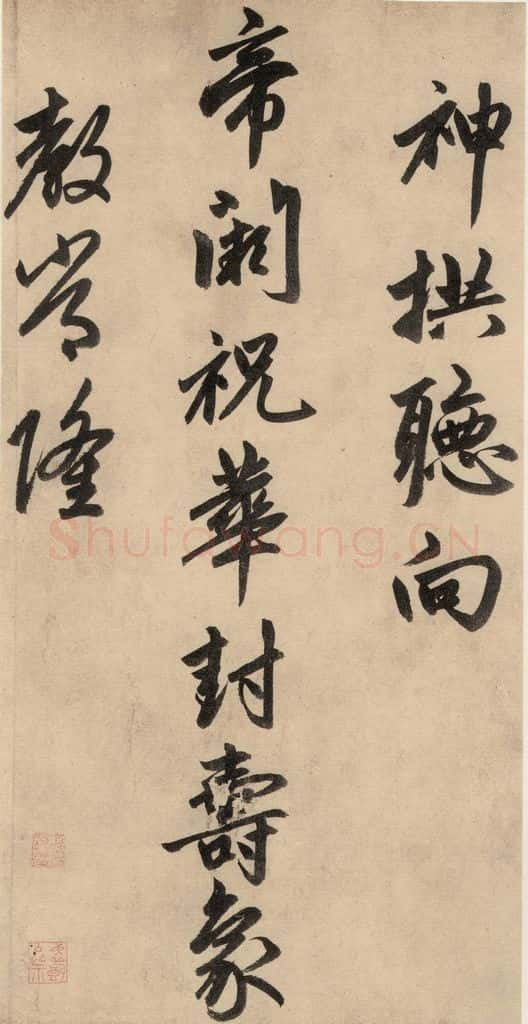 神拱聽向
帝闕祝華封壽象
教常隆
Shufawang.CN